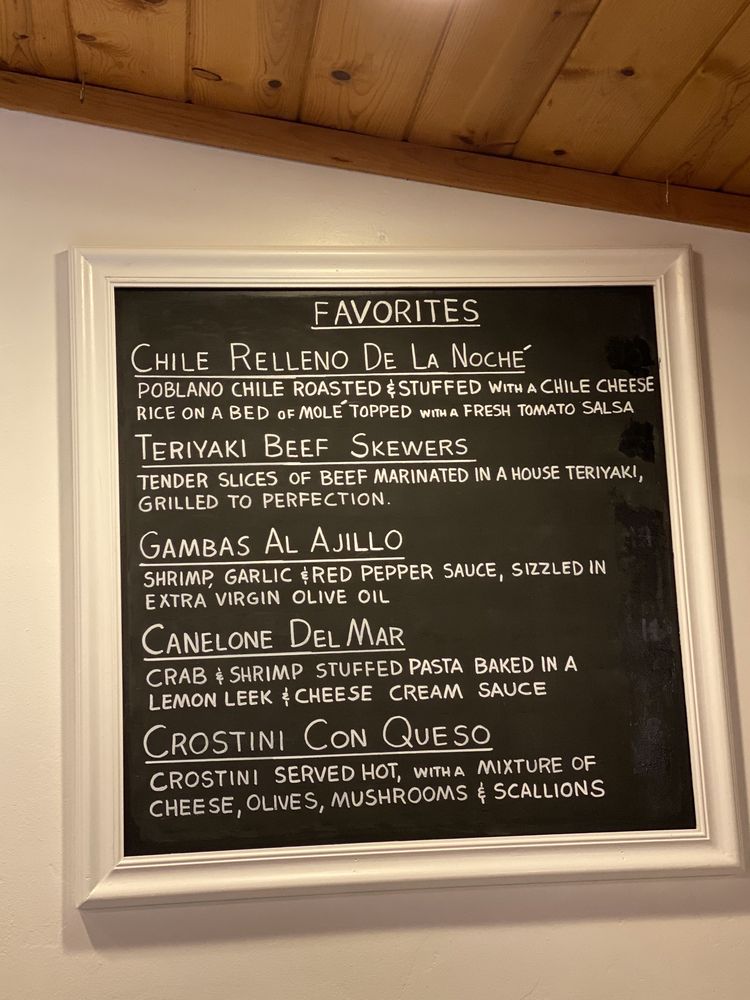 FAVORITES
CHILE RELLENO DE LA NOCHÉ
POBLANO CHILE ROASTED & STUFFED WITH A CHILE CHEESE
RICE ON A BED OF MOLÉ TOPPED WITH A FRESH TOMATO SALSA
TERIYAKI BEEF SKEWERS
TENDER SLICES OF BEEF MARINATED IN A HOUSE TERIYAKI,
GRILLED TO PERFECTION.
GAMBAS AL AJILLO
SHRIMP, GARLIC & RED PEPPER SAUCE, SIZZLED IN
EXTRA VIRGIN OLIVE OIL
CANELONE DEL MAR
CRAB & SHRIMP STUFFED PASTA BAKED IN A
LEMON LEEK & CHEESE CREAM SAUCE
CROSTINI CON QUESO
CROSTINI SERVED HOT, WITH A MIXTURE OF
CHEESE, OLIVES, MUSHROOMS & SCALLIONS